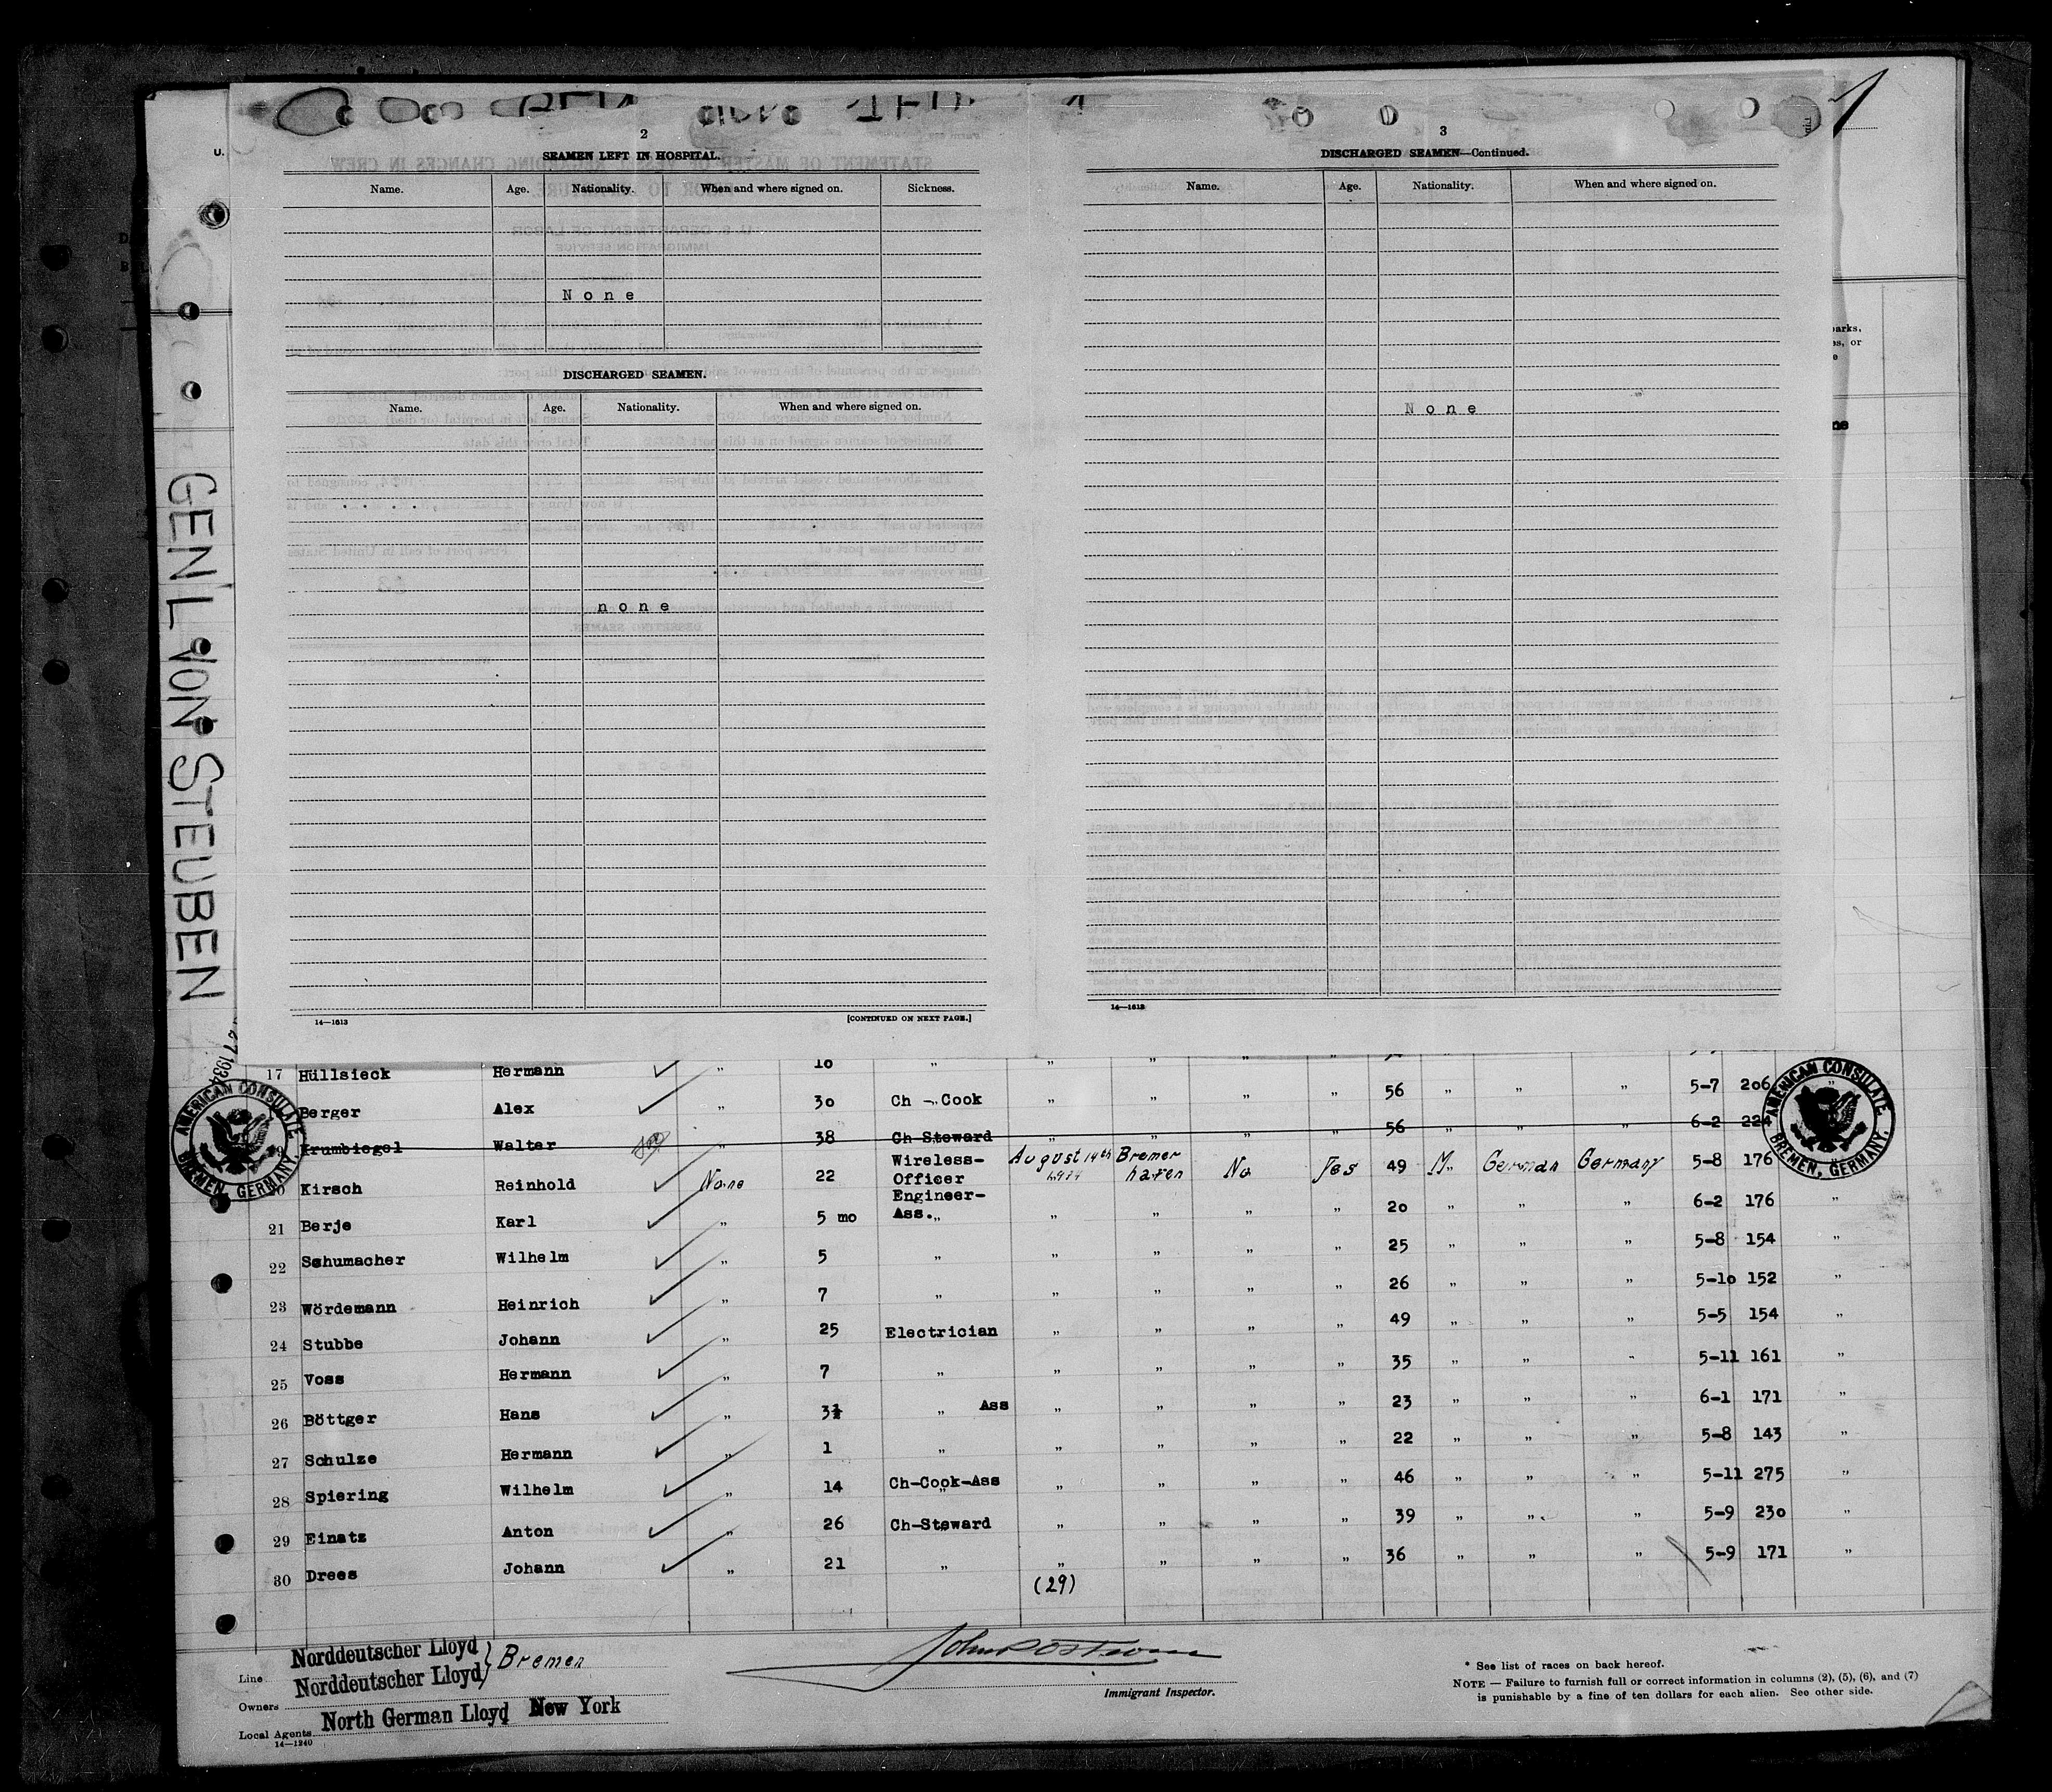 2
SEAMEN LEFT IN HOSPITAL.
Name. Age. Nationality. When and where signed on. Sickness.
None
DISCHARGED SEAMEN.
Name. Age. Nationality. When and where signed on.
none
14—1613 [CONTINUED ON NEXT PAGE.]
3
DISCHARGED SEAMEN—Continued.
Name. Age. Nationality. When and where signed on.
None
14—1613
U.
GEN'L VON STEUBEN
AMERICAN CONSULATE
BREMEN, GERMANY.
AMERICAN CONSULATE
BREMEN, GERMANY.
17 Hüllsieck Hermann " 10 " " " " "
Berger Alex " 30 Ch - Cook " " " " 56 " " " 5-7 206 "
Krumbiegel Walter " 38 Ch Steward " " " " 56 " " " 6-2 224
Kirsch Reinhold None 22 Wireless-Officer August 14th Bremerhafen No Yes 49 M German Germany 5-8 176
21 Berje Karl " 5 mo Engineer-Ass. " " " " 20 " " " 6-2 176 "
22 Schumacher Wilhelm " 5 " " " " " 25 " " " 5-8 154 "
23 Wördemann Heinrich " 7 " " " " " 26 " " " 5-10 152 "
24 Stubbe Johann " 25 Electrician " " " " 49 " " " 5-5 154 "
25 Voss Hermann " 7 " " " " " 35 " " " 5-11 161 "
26 Böttger Hans " 3½ " Ass " " " " 23 " " " 6-1 171 "
27 Schulze Hermann " 1 " " " " " 22 " " " 5-8 143 "
28 Spiering Wilhelm " 14 Ch-Cook-Ass " " " " 46 " " " 5-11 275 "
29 Einatz Anton " 26 Ch-Steward " " " " 39 " " " 5-9 230 "
30 Drees Johann " 21 " " " " " 36 " " " 5-9 171 "
(29)
Line Norddeutscher Lloyd } Bremen
Owners Norddeutscher Lloyd
Local Agents North German Lloyd New York
14—1240
Immigrant Inspector.
* See list of races on back hereof.
NOTE — Failure to furnish full or correct information in columns (2), (5), (6), and (7)
is punishable by a fine of ten dollars for each alien. See other side.